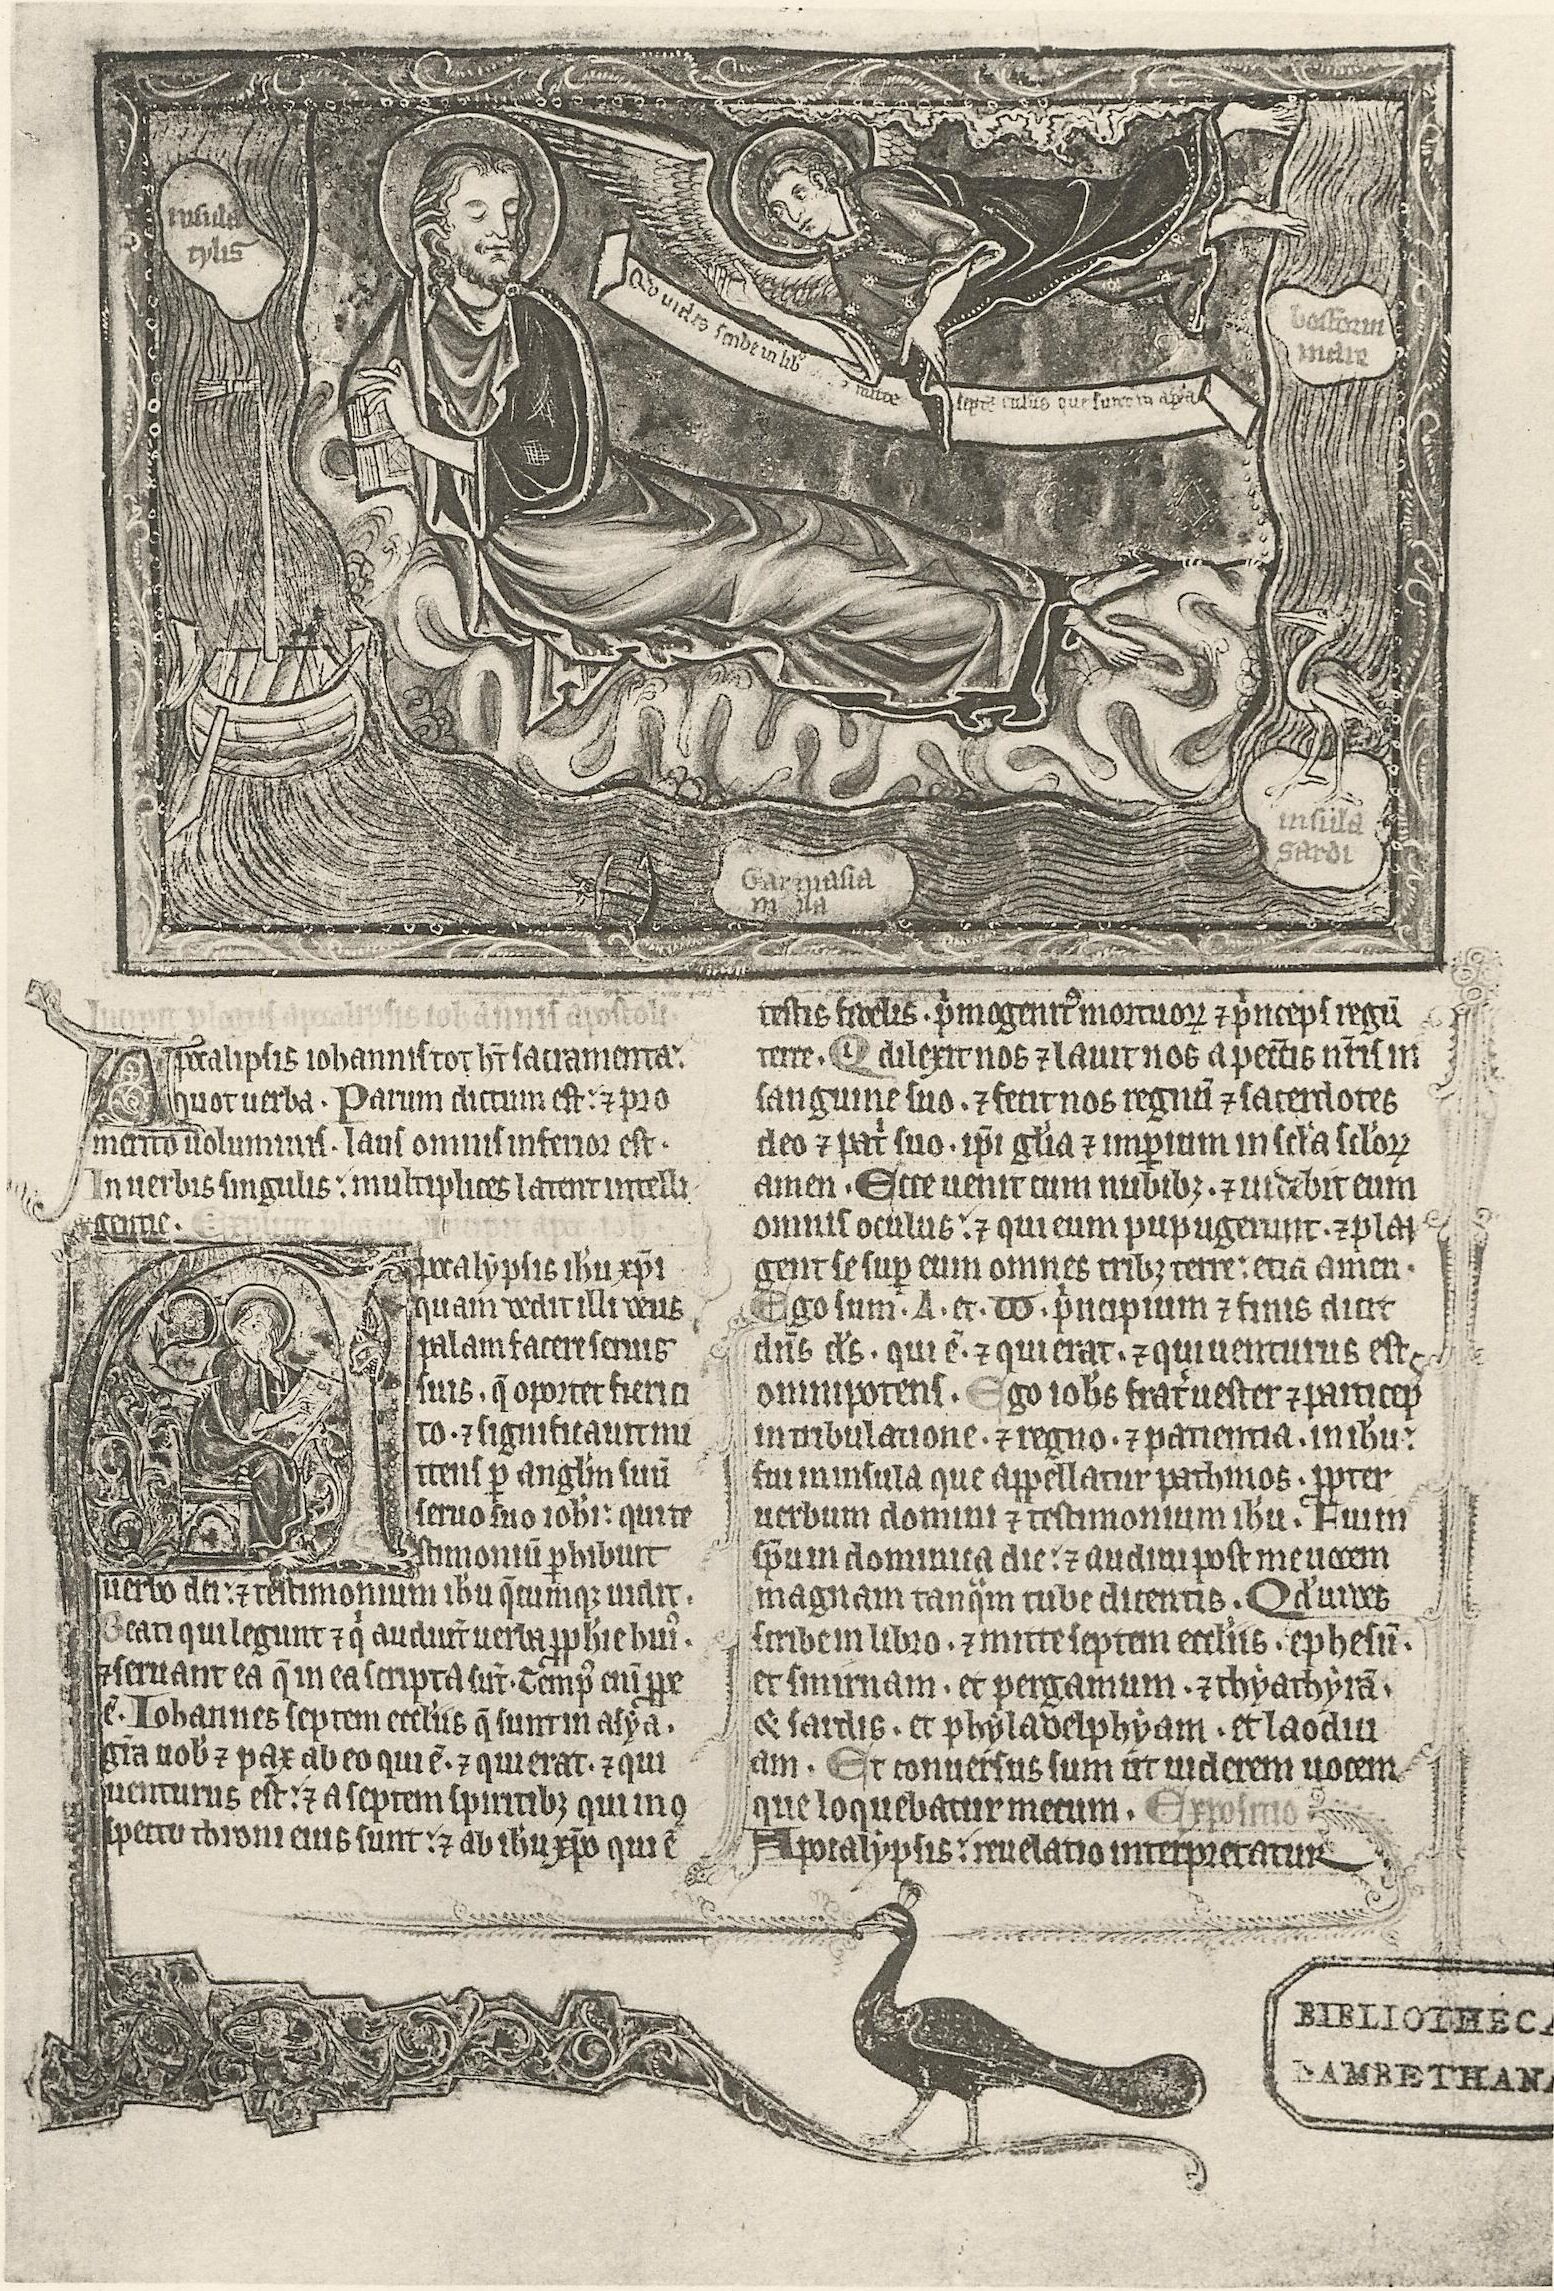 insula
tylis
Qd uides scribe in lib°
mitte
septē
que sunt in asya
insula
sardi
Apocalipsis iohannis tot hn̄t sacramenta:
quot uerba. Parum dictum est: ⁊ pro
merito uoluminis. laus omnis inferior est.
In uerbis singulis: multiplices latent intelli
gentie.
Apocalypsis ihu xp̄i
quam dedit illi deus
palam facere seruis
suis. q̄ oportet fieri ci
to. ⁊ significauit mi
ttens p̄ angl̄m suū
seruo suo ioh̄i: qui te
stimoniū p̄hibuit
uerbo dei: ⁊ testimonium ihu q̄cumqꝫ uidit.
Beati qui legunt ⁊ q̇ audiūt uerba ꝓph̄ie hui᾽.
⁊ seruant ea q̄ in ea scripta sūt. Temp᾽ eni̅ ꝓpe
ē. Iohannes septem eccl̄iis q̄ sunt in asya.
gr̄a uob̄ ⁊ pax ab eo qui ē. ⁊ qui erat. ⁊ qui
uenturus est: ⁊ a septem spiritibꝫ qui in ꝯ
spectu throni eius sunt: ⁊ ab ihu xp̄o qui ē
testis fidelis. ṗmogenit᾽ mortuoꝝ ⁊ ṗnceps regū
terre. Qi dilexit nos ⁊ lauit nos a pecc̄tis nr̄is in
sanguine suo. ⁊ fecit nos regnū ⁊ sacerdotes
deo ⁊ patri suo. ip̄i gl̄ia ⁊ imp̄ium in sc̄la sc̄loꝝ
amen. Ecce uenit cum nubibꝫ. ⁊ uidebit eum
omnis oculus: ⁊ qui eum pupugerunt. ⁊ plan
gent se sup̄ eum omnes tribꝫ terre: etiā amen.
Ego sum. A. et. ω. ṗncipium ⁊ finis dicit
dn̄s ds̄. qui ē. ⁊ qui erat. ⁊ qui uenturus est
omnipotens. Ego ioh̄s frat̄ uester ⁊ particep̄
in tribulatione. ⁊ regno. ⁊ patientia. in ihu:
fui in insula que appellatur pathmos. ꝓpter
uerbum domini ⁊ testimonium ihu. Fui in
sp̄u in dominica die: ⁊ audiui post me uocem
magnam tanq̄m tube dicentis. Qd̄ uides
scribe in libro. ⁊ mitte septem eccl̄iis. ephesū.
et smirnam. et pergamum. ⁊ thyathyrā.
& sardis. et phyladelphyam. et laodici
am. Et conuersus sum ut uiderem uocem
que loquebatur mecum. Expositio
Apocalypsis: reuelatio interpretatur
BIBLIOTHECA
LAMBETHANA